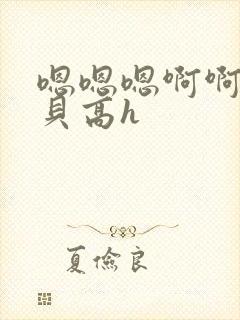 嗯嗯嗯啊啊
貝高h
夏儉良